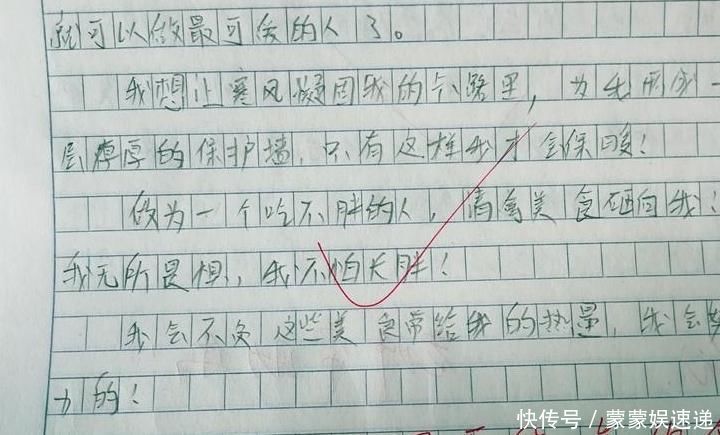 就可以做最可爱的人了。
我想让寒风凝固我的个路里，为我形成一
层厚厚的保护墙，只有这样我才会保暖！
做为一个吃不胖的人，请食美食砸向我！
我无所畏惧，我不怕长胖！
我会不负这些美食带给我的热量，我会努
力的！
快传号／蒙蒙娱速递